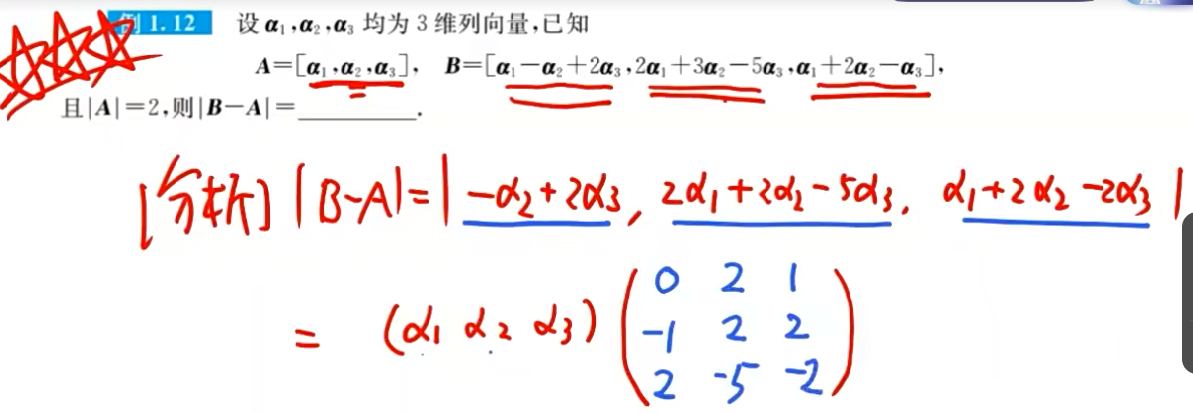 例 1.12 设 α₁,α₂,α₃ 均为 3 维列向量,已知
A=[α₁,α₂,α₃], B=[α₁-α₂+2α₃,2α₁+3α₂-5α₃,α₁+2α₂-α₃],
且|A|=2,则|B-A|=________.
[分析] |B-A|=|-α₂+2α₃, 2α₁+2α₂-5α₃, α₁+2α₂-2α₃|
= (α₁ α₂ α₃) ( 0 2 1
-1 2 2
2 -5 -2 )